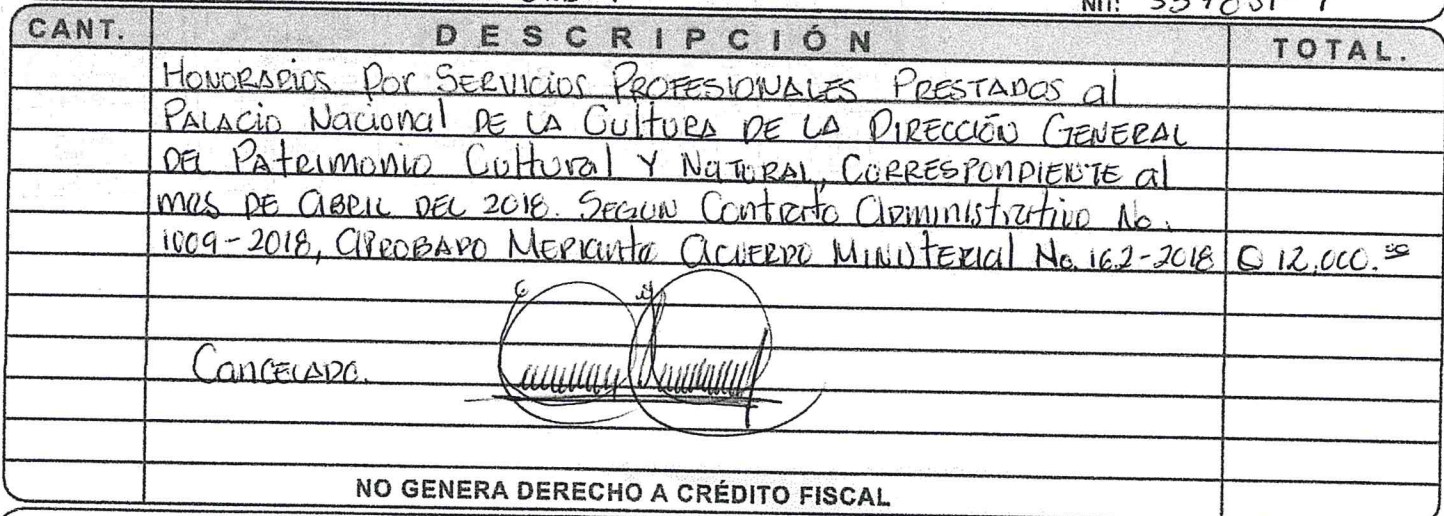 NIT:
CANT. DESCRIPCIÓN TOTAL.
HONORARIOS Por SERVICIOS PROFESIONALES PRESTADOS al
PALACIO Nacional DE LA CULTURA DE LA DIRECCIÓN GENERAL
DEL PATRIMONIO Cultural Y NATURAL, CORRESPONDIENTE al
mes DE ABRIL DEL 2018. SEGUN Contrato Administrativo No.
1009-2018, APROBADO MEDIANTE ACUERDO MINISTERIAL No. 162-2018 Q 12,000.00
CANCELADO.
NO GENERA DERECHO A CRÉDITO FISCAL